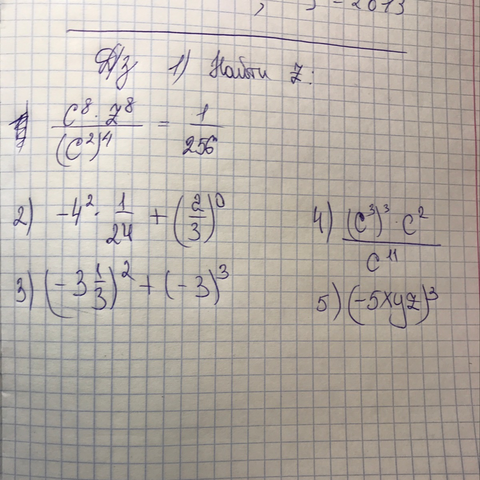 , 3 - 2013
Д/з 1) Найти z:
(c⁸ · z⁸)/(c²)⁴ = 1/256
2) -4² · 1/24 + (2/3)⁰
4) ((c³)³ · c²)/c¹¹
3) (-3 1/3)² + (-3)³
5) (-5xyz)³